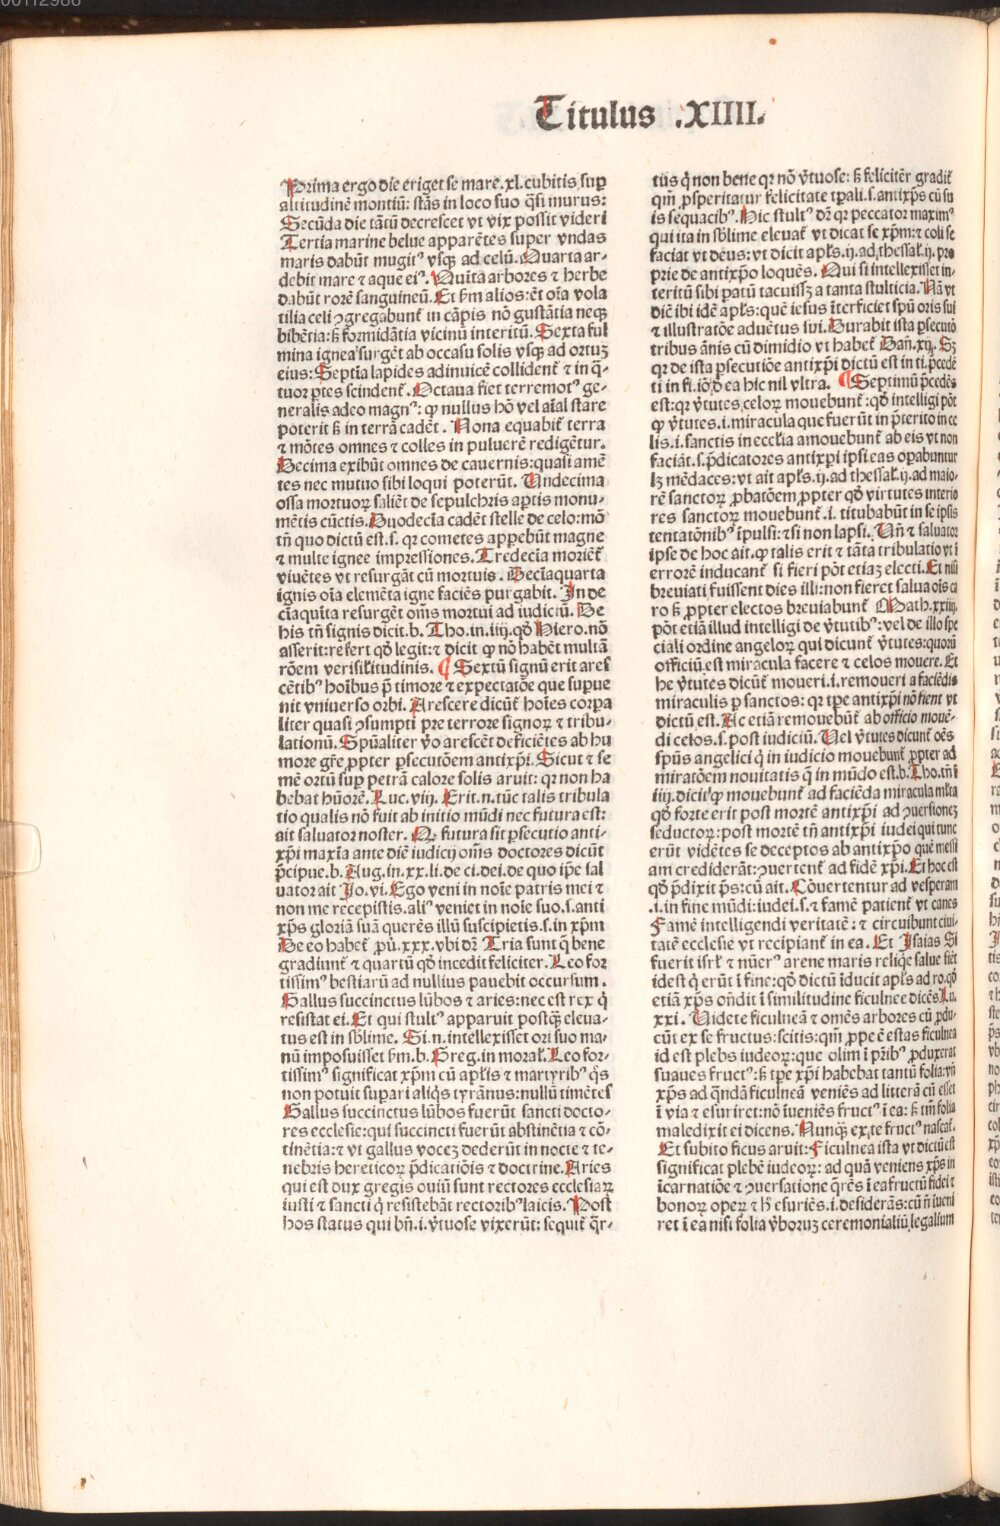 Titulus .XIIII.
Prima ergo die eriget se mare.xl.cubitis sup̄
altitudinē montiū: stās in loco suo q̄si murus:
Secūda die tātū decrescet vt vix possit videri
Tertia marine belue apparētes super vndas
maris dabūt mugitꝰ vsqꝫ ad celū.Quarta ar-
debit mare ⁊ aque eiꝰ.Quīta arbores ⁊ herbe
dabūt rorē sanguineū.Et ẜm alios:ēt oīa vola
tilia celi ꝯgregabunt̄ in cāpis nō gustātia neqꝫ
bibētia:ẜ formidātia vicinū interitū.Sexta ful
mina ignea surgēt ab occasu solis vsqꝫ ad ortuꝫ
eius:Septīa lapides adinuicē collident̄ ⁊ in q̄-
tuor ꝑtes scindent̄.Octaua fiet terremotꝰ ge-
neralis adeo magnꝰ: ꝙ nullus hō vel aīal stare
poterit ẜ in terrā cadēt.Nona equabit̄ terra
⁊ mōtes omnes ⁊ colles in puluerē redigētur.
Decima exibūt omnes de cauernis:quasi amē
tes nec mutuo sibi loqui poterūt.Undecima
ossa mortuoꝝ saliēt de sepulchris aꝑtis monu-
mētis cūctis.Duodecīa cadēt stelle de celo:mō
tn̄ quo dictū est.s.qꝛ cometes apꝑebūt magne
⁊ multe ignee impressiones.Tredecīa moriēt̄
viuētes vt resurgāt cū mortuis.Decīaquarta
ignis oīa elemēta igne faciēs purgabit.In de
cīaquīta resurgēt om̄s mortui ad iudiciū.De
his tn̄ signis dicit.b.Tho.in.iiij.qd̄ Hiero.nō
asserit:refert qd̄ legit:⁊ dicit ꝙ nō habēt multā
rōem verisil̄itudinis. ¶ Sextū signū erit ares
cētibꝰ hoībus p̄ timore ⁊ expectatōe que supue
nit vniuerso orbi.Arescere dicūt̄ hoīes corpa
liter quasi ꝯsumpti pre terrore signoꝝ ⁊ tribu-
lationū.Spūaliter v̄o arescēt deficiētes ab hu
more gr̄e,ꝓpter ꝑsecutōem antixp̄i.Sicut ⁊ se
mē ortū sup̄ petrā calore solis aruit: qꝛ non ha
bebat hūorē.Luc.viij.Erit.n.tūc talis tribula
tio qualis nō fuit ab initio mūdi nec futura est:
ait saluator noster.Qꝙ futura sit ꝑsecutio anti-
xp̄i maxīa ante diē iudicij om̄s doctores dicūt
p̄cipue.b.Aug.in.xx.li.de ci.dei.de quo ip̄e sal
uator ait Jo.vi.Ego veni in noīe patris mei ⁊
non me recepistis.aliꝰ veniet in noīe suo.s.anti
xp̄s gloriā suā querēs illū suscipietis.s.in xp̄m
De eo habet̄ ꝓū.xxx.vbi dr̄.Tria sunt q̄ bene
gradiunt̄ ⁊ quartū qd̄ incedit feliciter.Leo for
tissimꝰ bestiarū ad nullius pauebit occursum.
Gallus succinctus lūbos ⁊ aries:nec est rex q̇
resistat ei.Et qui stultꝰ apparuit postqꝫ eleua-
tus est in sb̄lime.Si.n.intellexisset ori suo ma-
nū imposuisset ẜm.b.Greg.in moral̄.Leo for-
tissimꝰ significat xp̄m cū apl̄is ⁊ martyribꝰ q̇s
non potuit supari aliq̇s tyrānus:nullū timētes
Gallus succinctus lūbos fuerūt sancti docto-
res ecclesie:qui succincti fuerūt abstinētia ⁊ cō-
tinētia:⁊ vt gallus voceꝫ dederūt in nocte ⁊ te-
nebris hereticoꝝ p̄dicatiōis ⁊ doctrine.Aries
qui est dux gregis ouiū sunt rectores ecclesiaꝝ
iusti ⁊ sancti q̇ resistebāt rectoribꝰ laicis.Post
hos status qui bn̄.i.v̄tuose vixerūt: sequit̄ q̄r-
tūs q̇ non bene qꝛ nō v̄tuose: ẜ feliciter gradit̄
qm̄ ꝓsperitatur felicitate tp̄ali.s.antixp̄s cū su
is sequacibꝰ.Hic stultꝰ dr̄ qꝛ peccator maximꝰ
qui ita in sb̄lime eleuat̄ vt dicat se xp̄m:⁊ coli se
faciat vt deus:vt dicit apl̄s.ij.ad,thessal̄.ij.pro
prie de antixp̄o loquēs.Qui si intellexisset in-
teritū sibi patū tacuissꝫ a tanta stulticia.Nā vt
diē ibi idē apl̄s:quē iesus īterficiet spū oris sui
⁊ illustratōe aduētus sui.Durabit ista ꝑsecutō
tribus ānis cū dimidio vt habet̄ Dan̄.xij.Sꝫ
qꝛ de ista ꝑsecutiōe antixp̄i dictū est in ti.p̄cedē
ti in fi.iō d̄ ea hic nil vltra. ¶ Septimū p̄cedēs
est:qꝛ v̄tutes celoꝝ mouebunt̄:qd̄ intelligi pōt
ꝙ v̄tutes.i.miracula que fuerūt in p̄terito in ec
lis.i.sanctis in ecclīa amouebunt̄ ab eis vt non
faciāt.s.p̄dicatores antixp̄i ipsi eas opabuntur
lꝫ mēdaces:vt ait apl̄s.ij.ad thessal̄.ij.ad maio-
rē sanctoꝝ ꝓbatōem,ꝓpter qd̄ virtutes interio
res sanctoꝝ mouebunt̄.i.titubabūt in se ipsis
tentatōnibꝰ īpulsi:⁊ si non lapsi.Un̄ ⁊ saluator
ipse de hoc ait.ꝙ talis erit ⁊ tāta tribulatio vt ī
errorē inducant̄ si fieri pōt etiaꝫ electi.Et nisi
breuiati fuissent dies illi:non fieret salua ois ca
ro ẜ ꝓpter electos breuiabunt̄ Math.xxiiij.
pōt etiā illud intelligi de v̄tutibꝰ:vel de illo spe
ciali ordine angeloꝝ qui dicunt̄ v̄tutes:quorū
officiū est miracula facere ⁊ celos mouere.Et
he v̄tutes dicūt̄ moueri.i.remoueri a faciēdis
miraculis ꝑ sanctos: qꝛ tꝑe antixp̄i nō fient vt
dictū est.Ac etiā remouebūt̄ ab officio mouē-
di celos.s.post iudiciū.Uel v̄tutes dicunt oēs
spūs angelici q̇ in iudicio mouebunt̄ ꝓpter ad
miratōem nouitatis q̄ in mūdo est.b.Tho.tn̄ ī
iiij.dicit ꝙ mouebunt̄ ad faciēda miracula ml̄ta
qd̄ forte erit post mortē antixp̄i ad ꝯuersioneꝫ
seductoꝝ:post mortē tn̄ antixp̄i iudei qui tunc
erūt vidētes se deceptos ab antixp̄o quē messi
am crediderāt:ꝯuertent̄ ad fidē xp̄i.Et hoc est
qd̄ p̄dixit ps̄:cū ait.Cōuertentur ad vesperam
.i.in fine mūdi:iudei.s.⁊ famē patient̄ vt canes
Famē intelligendi veritatē: ⁊ circuibunt ciui-
tatē ecclesie vt recipiant̄ in ea.Et Isaias Si
fuerit isrl̄ ⁊ nūerꝰ arene maris reliq̄e salue fiēt
idest q̇ erūt ī fine:qd̄ dictū īducit apl̄s ad ro.qd̄
etiā xp̄s on̄dit ī similitudine ficulnee dicēs Lu.
xxi.Uidete ficulneā ⁊ omēs arbores cū ꝓdu-
cūt ex se fructus:scitis:qm̄ ꝓpe ē estas ficulnea
id est plebs iudeoꝝ:que olim ī pr̄ibꝰ ꝓduxerat
suaues fructꝰ:ẜ tꝑe xp̄i habebat tantū folia:vn̄
xp̄s ad q̄ndā ficulneā veniēs ad litterā cū esset
ī via ⁊ esuriret:nō īueniēs fructꝰ ī ea: ẜ tm̄ folia
maledixit ei dicens.Nunqꝫ ex,te fructꝰ nascat̄.
Et subito ficus aruit:Ficulnea ista vt dictū est
significat plebē iudeoꝝ: ad quā veniens xp̄s in
īcarnatiōe ⁊ ꝯuersatione q̄rēs ī ea fructū fidei ⁊
bonoꝝ opeꝝ ⁊ hꝰ esuriēs.i.desiderās:cū n̄ iueni
ret ī ea nisi folia v̄boruꝫ ceremonialiū,legalium